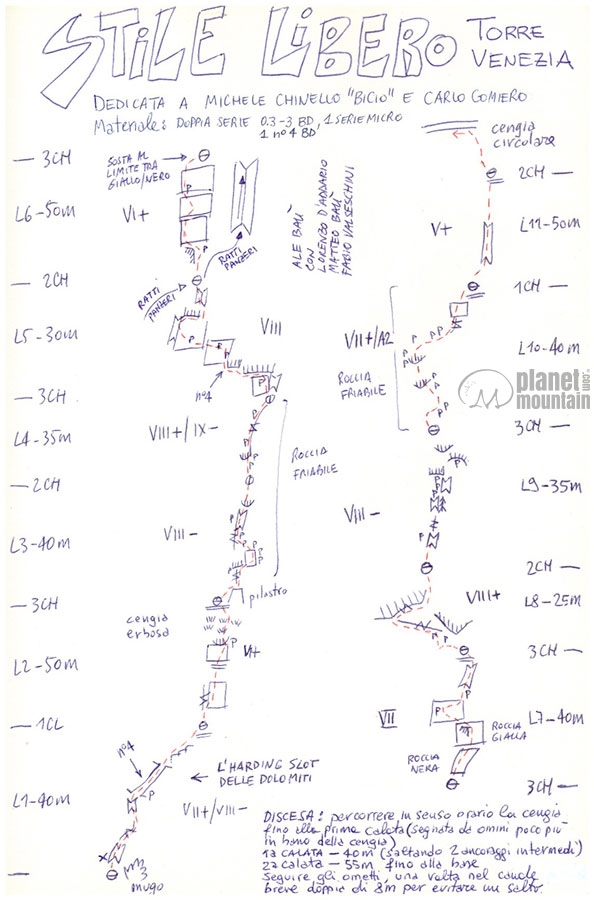 STILE LIBERO
TORRE
VENEZIA
DEDICATA A MICHELE CHINELLO "BICIO" E CARLO GOMIERO
Materiale: DOPPIA SERIE 0.3-3 BD, 1 SERIE MICRO
1 n°4 BD
— 3CH
SOSTA AL
LIMITE TRA
GIALLO/NERO
L6-50m
VI+
P
P
RATTI
PANZERI
— 2CH
RATTI
PANZERI
ALE BAÙ
CON
LORENZO D'ADDARIO
MATTEO BAÙ
FABIO VALSESCHINI
L5-30m
VIII
P
P
n°4
P
— 3CH
L4-35m
VIII+/IX-
P
P
ROCCIA
FRIABILE
— 2CH
VIII-
L3-40m
P
P
P
P
— 3CH
pilastro
cengia
erbosa
P
VI+
L2-50m
— 1CL
n°4
L'HARDING SLOT
DELLE DOLOMITI
P
L1-40m
VII+/VIII-
mugo
—
cengia
circolare
2CH —
V+
L11-50m
1CH —
VII+/A2
P
P
P
P
L10-40m
ROCCIA
FRIABILE
P
P
P
P
planet
mountain
.com
3CH —
P
P
P
L9-35m
VIII-
P
P
2CH —
VIII+
L8-25m
P
P
3CH —
P
VII
P
L7-40m
ROCCIA
GIALLA
ROCCIA
NERA
3CH —
DISCESA: percorrere in senso orario la cengia
fino alla prima calata (segnata da omini poco più
in basso della cengia)
1a CALATA — 40m (saltando 2 ancoraggi intermedi)
2a calata — 55m fino alla base
Seguire gli ometti, una volta nel canale
breve doppia di 8m per evitare un salto.